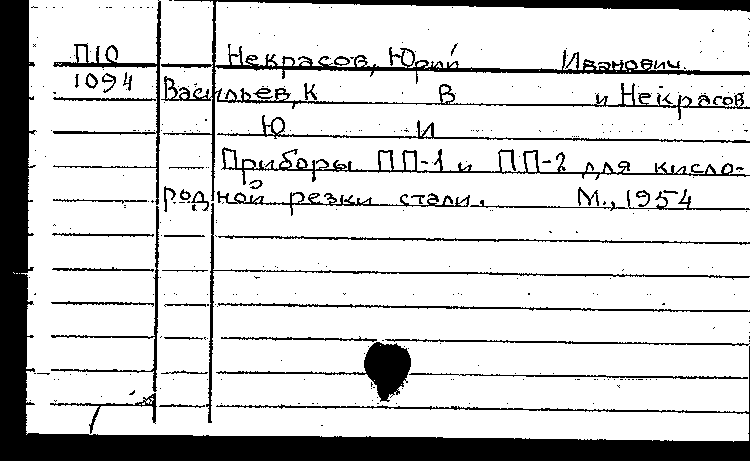 П10 Некрасов, Юрий Иванович
1094 Васильев, К В и Некрасов
Ю И
Приборы ПП-1 и ПП-2 для кисло-
родной резки стали. М., 1954